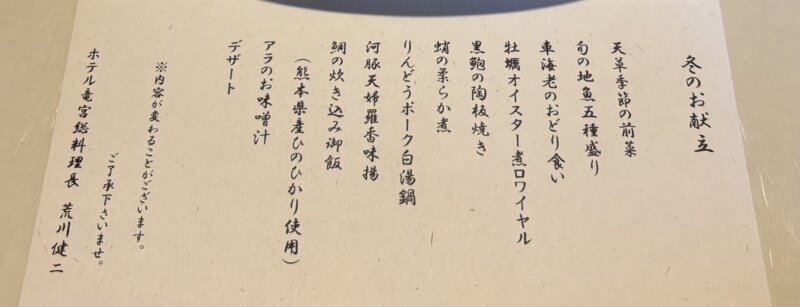 冬のお献立
天草季節の前菜
旬の地魚五種盛り
車海老のおどり食い
牡蠣オイスター煮ロワイヤル
黒鮑の陶板焼き
蛸の柔らか煮
りんどうポーク白湯鍋
河豚天婦羅香味揚
鯛の炊き込み御飯
(熊本県産ひのひかり使用)
アラのお味噌汁
デザート
※内容が変わることがございます。
ご了承下さいませ。
ホテル竜宮総料理長 荒川健二